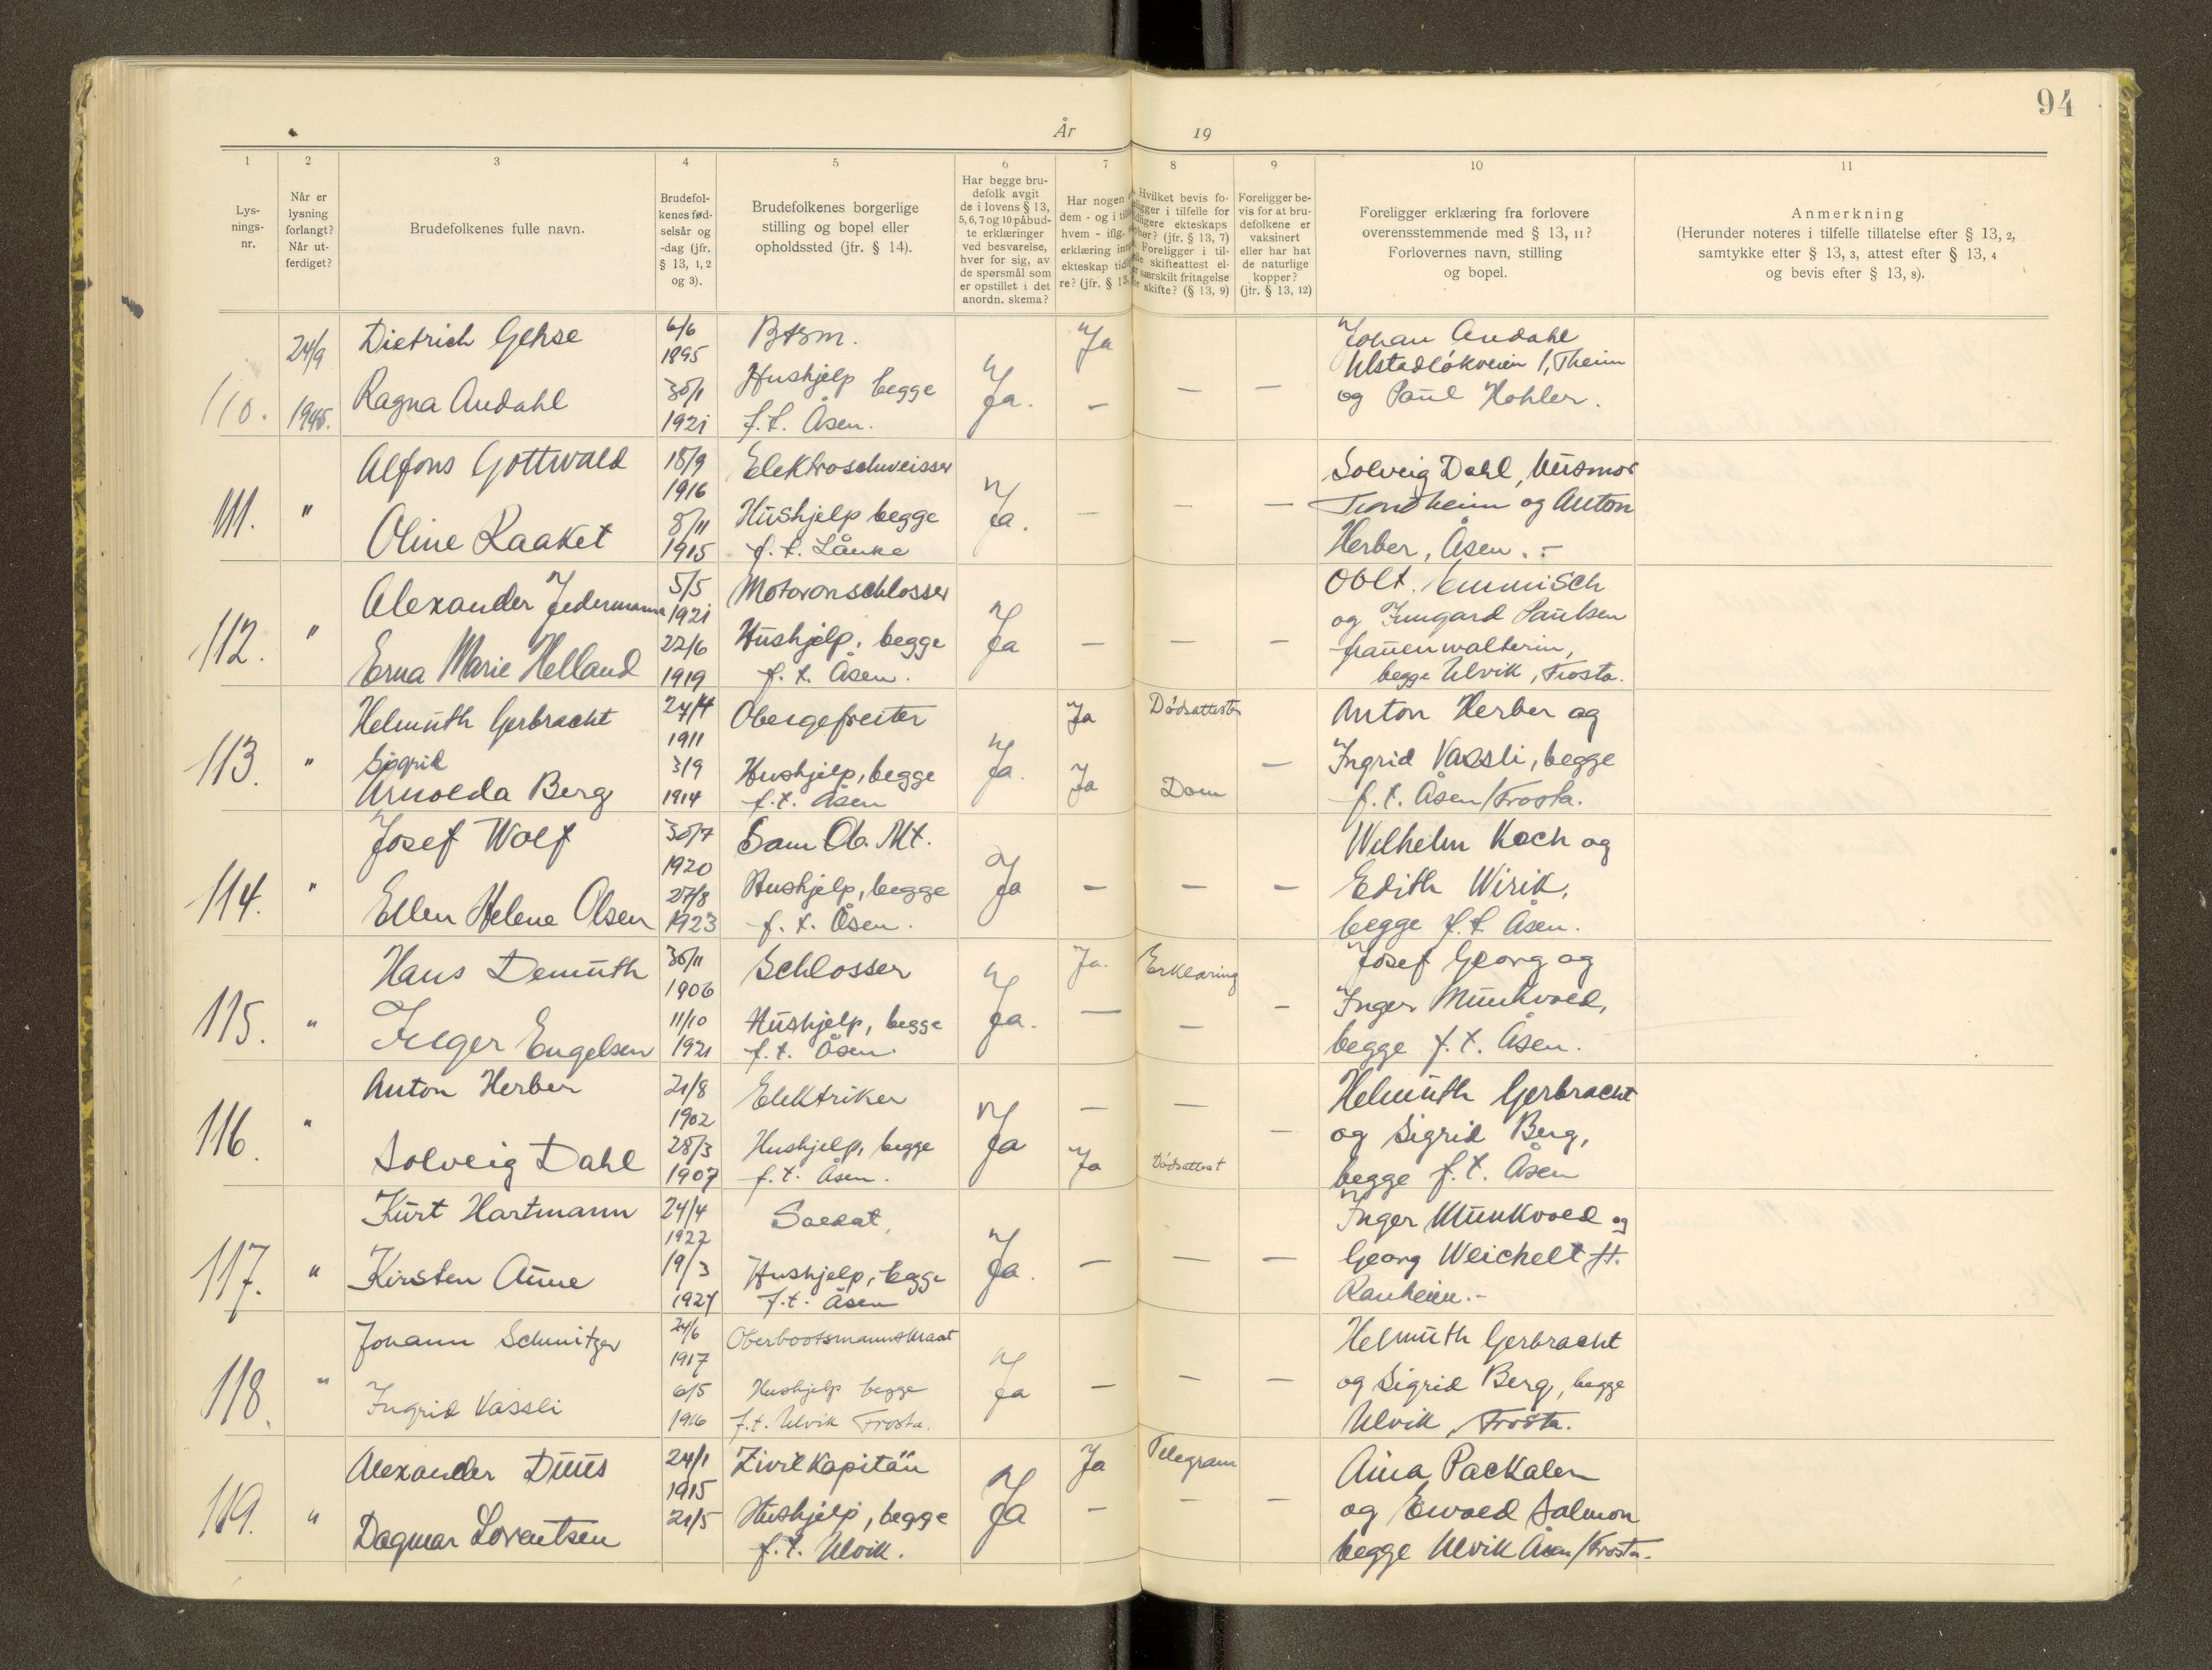 94
År 19
1 2 3 4 5 6 7 8 9 10 11
Lys-
nings-
nr.
Når er
lysning
forlangt?
Når ut-
ferdiget?
Brudefolkenes fulle navn.
Brudefol-
kenes fød-
selsår og
-dag (jfr.
§ 13, 1, 2
og 3).
Brudefolkenes borgerlige
stilling og bopel eller
opholdssted (jfr. § 14).
Har begge bru-
defolk avgit
de i lovens § 13,
5, 6, 7 og 10 påbud-
te erklæringer
ved besvarelse,
hver for sig, av
de spørsmål som
er opstillet i det
anordn. skema?
Har nogen
dem - og i
hvem - iflg.
erklæring
ekteskap
re? (jfr. §
Hvilket bevis fo-
religger i tilfelle for
tidligere ekteskaps
(jfr. § 13, 7)
Foreligger i til-
skifteattest el-
særskilt fritagelse
skifte? (§ 13, 9)
Foreligger be-
vis for at bru-
defolkene er
vaksinert
eller har hat
de naturlige
kopper?
(jfr. § 13, 12)
Foreligger erklæring fra forlovere
overensstemmende med § 13, 11?
Forlovernes navn, stilling
og bopel.
Anmerkning
(Herunder noteres i tilfelle tillatelse efter § 13, 2,
samtykke efter § 13, 3, attest efter § 13, 4
og bevis efter § 13, 8).
110.
24/9
1945.
Dietrich Gehse
Ragna Andahl
6/6
1895
30/1
1921
Btsm.
Hushjelp begge
f.t. Åsen.
Ja.
Ja
-
-
-
Johan Andahl
Ulstadløkveien 1, Theim
og Paul Kohler.
111.
"
Alfons Gottwald
Oline Raaket
18/9
1916
8/11
1915
Elektroschweisser
Hushjelp begge
f.t. Lånke
Ja.
-
-
-
Solveig Dahl, Husmor
Trondheim og Anton
Herber, Åsen.-
112.
"
Alexander Jedermann
Erna Marie Helland
5/5
1921
22/6
1919
Motorenschlosser
Hushjelp, begge
f.t. Åsen.
Ja
-
-
-
Oblt. Emmisch
og Irmgard Paulsen
frauenwalterin,
begge Ulvik, Frosta.
113.
"
Helmuth Gerbracht
Sigrid
Arnolda Berg
24/4
1911
3/9
1914
Obergefreiter
Hushjelp, begge
f.t. Åsen
Ja.
Ja
Ja
Dødsattester
Dom
-
Anton Herber og
Ingrid Vassli, begge
f.t. Åsen/Frosta.
114.
"
Josef Wolf
Ellen Helene Olsen
30/7
1920
27/8
1923
Sam Ob. Mt.
Hushjelp, begge
f.t. Åsen.
Ja
-
-
-
Wilhelm Koch og
Edith Wirik,
begge f.t. Åsen.
115.
"
Hans Demuth
Inger Engelsen
30/11
1906
11/10
1921
Schlosser
Hushjelp, begge
f.t. Åsen.
Ja.
Ja.
-
Erklæring
-
-
Josef Georg og
Inger Munkvold,
begge f.t. Åsen.
116.
"
Anton Herber
Solveig Dahl
21/8
1902
28/3
1907
Elektriker
Hushjelp, begge
f.t. Åsen.
Ja
-
Ja
-
Dødsattest
-
Helmuth Gerbracht
og Sigrid Berg,
begge f.t. Åsen
117.
"
Kurt Hartmann
Kirsten Aune
24/4
1922
19/3
1924
Soldat,
Hushjelp, begge
f.t. Åsen
Ja.
-
-
-
Inger Munkvold og
Georg Weichelt ft.
Ranheim.-
118.
"
Johann Schmitzer
Ingrid Vassli
24/6
1917
6/5
1916
Oberbootsmannsmaat
Hushjelp begge
f.t. Ulvik Frosta.
Ja
-
-
-
Helmuth Gerbracht
og Sigrid Berg, begge
Ulvik, Frosta.
119.
"
Alexander Duus
Dagmar Lorentsen
24/1
1915
21/5
Zivilkapitän
Hushjelp, begge
f.t. Ulvik.
Ja
Ja
-
Telegram
-
-
Aina Packalen
og Ewald Salmon
begge Ulvik Åsen/Frosta.